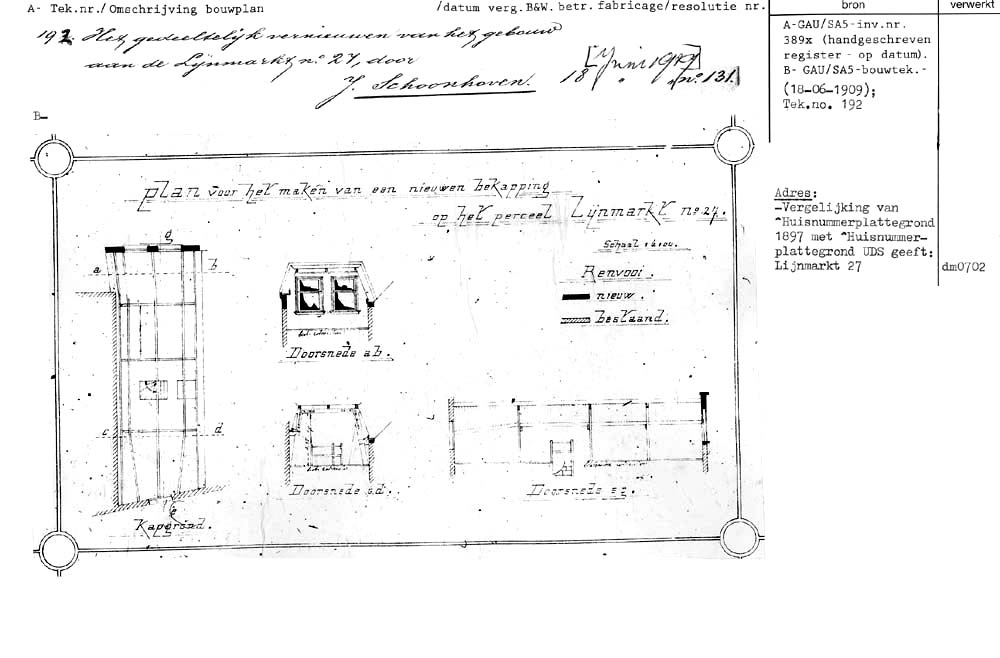 A- Tek.nr./ Omschrijving bouwplan
/datum verg.B&W. betr. fabricage/resolutie nr.
bron
verwerkt
192. Het gedeeltelijk vernieuwen van het gebouw
aan de Lijnmarkt no 27, door
J. Schoonhoven.
[Juni 1909]
18 " " no 131
A-GAU/SA5-inv.nr.
389x (handgeschreven
register - op datum).
B- GAU/SA5-bouwtek.-
(18-06-1909);
Tek.no. 192
B-
plan voor het maken van een nieuwen bekapping
op het perceel Lijnmarkt no 27.
Schaal 1 à 100.
Renvooi.
nieuw.
bestaand.
g
a
b
c
d
Kapgrond.
Doorsnede ab.
Doorsnede c.d.
Doorsnede e g.
Adres:
-Vergelijking van
^Huisnummerplattegrond
1897 met ^Huisnummer-
plattegrond UDS geeft:
Lijnmarkt 27
dm0702